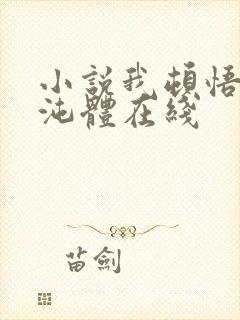 小説我頓悟
沌體在綫
苗劍